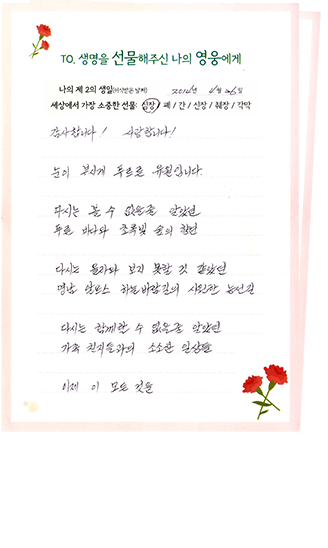 TO. 생명을 선물해주신 나의 영웅에게
나의 제 2의 생일(이식받은 날짜) 2014년 4월 26일
세상에서 가장 소중한 선물: 심장 / 폐 / 간 / 신장 / 췌장 / 각막
감사합니다! 사랑합니다!
눈이 부시게 푸르른 유월입니다.
다시는 볼 수 없을줄 알았던
푸른 바다와 초록빛 숲의 향연
다시는 올라와 보지 못할 것 같았던
영남 알프스 하늘바람길의 시원한 능선길
다시는 함께할 수 없을줄 알았던
가족 친지들과의 소소한 일상들
이제 이 모든 것을